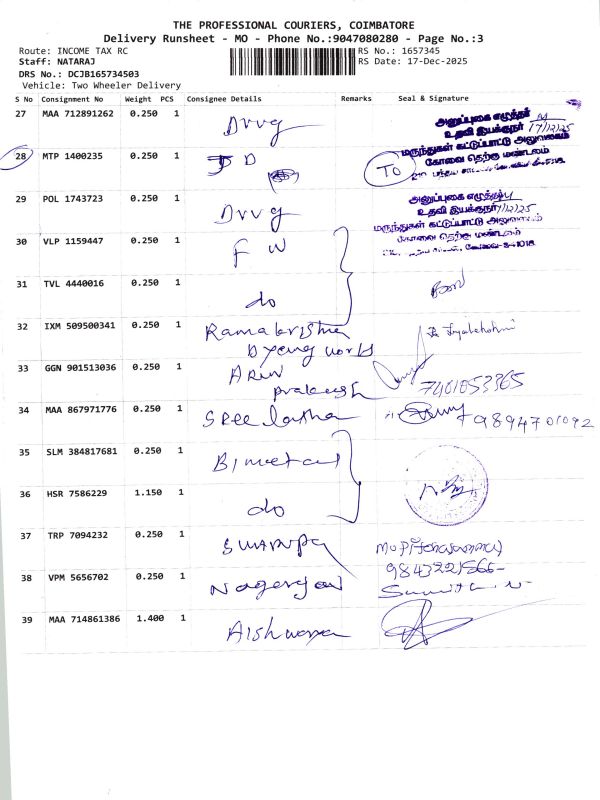 THE PROFESSIONAL COURIERS, COIMBATORE
Delivery Runsheet - MO - Phone No.:9047080280 - Page No.:3
Route: INCOME TAX RC RS No.: 1657345
Staff: NATARAJ RS Date: 17-Dec-2025
DRS No.: DCJB165734503
Vehicle: Two Wheeler Delivery
S No Consignment No Weight PCS Consignee Details Remarks Seal & Signature
27 MAA 712891262 0.250 1 Drug
அனுப்புகை எழுத்தர்
உதவி இயக்குநர் 17/12/25
மருந்துகள் கட்டுப்பாட்டு அலுவலகம்
கோவை தெற்கு மண்டலம்
28 MTP 1400235 0.250 1 D TO
29 POL 1743723 0.250 1 Drug
அனுப்புகை எழுத்தர்
உதவி இயக்குநர் 17/12/25
மருந்துகள் கட்டுப்பாட்டு அலுவலகம்
கோவை தெற்கு மண்டலம்
30 VLP 1159447 0.250 1 F W
31 TVL 4440016 0.250 1 do
32 IXM 509500341 0.250 1 Ramakrishna
Dyeing works
33 GGN 901513036 0.250 1 ARUN
prakash 7401053365
34 MAA 867971776 0.250 1 SREE latha 9894701092
35 SLM 384817681 0.250 1 Bimetal
36 HSR 7586229 1.150 1 do
37 TRP 7094232 0.250 1
9843221566
38 VPM 5656702 0.250 1 Nagarajan
39 MAA 714861386 1.400 1 Aishwarya